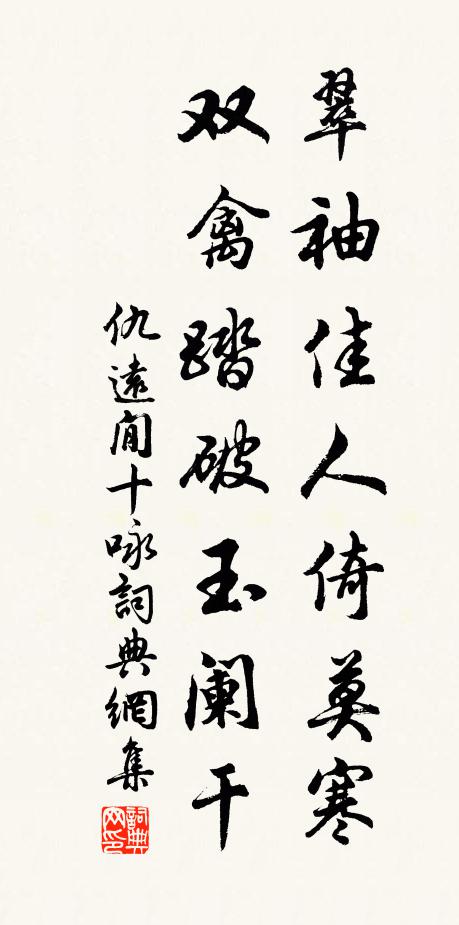 翠袖佳人倚莫寒
双禽踏破玉阑干
仇遠閒十咏詞典網集
詞典网印